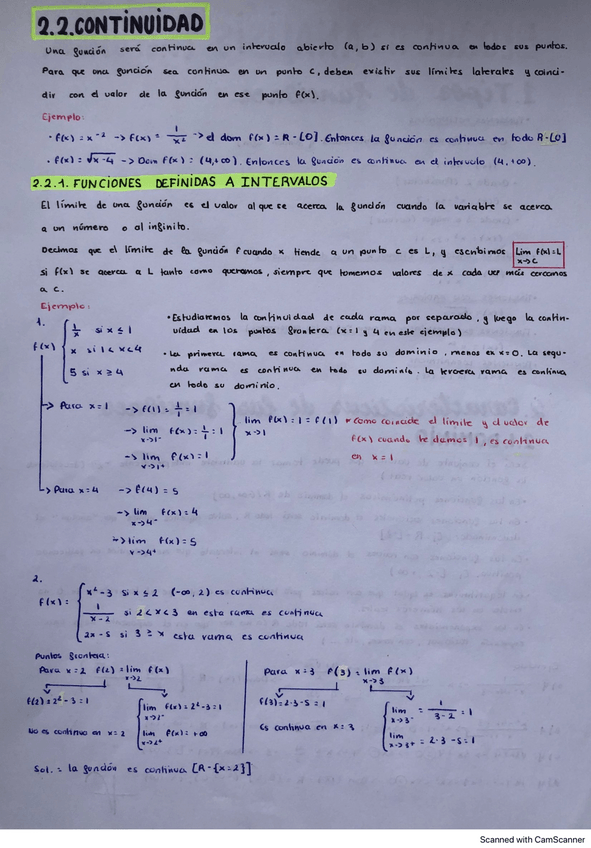 2.2. CONTINUIDAD
Una función será continua en un intervalo abierto (a,b) si es continua en todos sus puntos.
Para que una función sea continua en un punto c, deben existir sus límites laterales y coinci-
dir con el valor de la función en ese punto f(x).
Ejemplo:
· f(x) = x⁻² -> f(x) = 1/x² -> el dom f(x) = R - [0]. Entonces la función es continua en todo R-[0]
· f(x) = √x-4 -> Dom f(x) : (4,+∞). Entonces la función es continua en el intervalo (4,+∞).
2.2.1. FUNCIONES DEFINIDAS A INTERVALOS
El límite de una función es el valor al que se acerca la función cuando la variable se acerca
a un número o al infinito.
Decimos que el límite de la función f cuando x tiende a un punto c es L, y escribimos Lim f(x)=L x->c
si f(x) se acerca a L tanto como queramos, siempre que tomemos valores de x cada vez más cercanos
a c.
Ejemplo:
1.
f(x)
1/x si x ≤ 1
x si 1 < x < 4
5 si x ≥ 4
• Estudiaremos la continuidad de cada rama por separado, y luego la contin-
uidad en los puntos frontera (x=1 y 4 en este ejemplo)
• La primera rama es continua en todo su dominio, menos en x=0. La segu-
nda rama es continua en todo su dominio. La tercera rama es continua
en todo su dominio.
-> Para x=1 -> f(1) = 1/1 = 1
-> lim x->1⁻ f(x) = 1/1 = 1
-> lim x->1⁺ f(x) = 1
lim x->1 f(x) = 1 = f(1)
como coincide el límite y el valor de
f(x) cuando le damos 1, es continua
en x = 1
-> Para x=4 -> f(4) = 5
-> lim x->4⁻ f(x) = 4
-> lim x->4⁺ f(x) = 5
2.
f(x) =
x² - 3 si x ≤ 2 (-∞, 2) es continua
1/x-2 si 2 < x < 3 en esta rama es continua
2x - 5 si 3 ≥ x esta rama es continua
Puntos frontera:
Para x=2 f(2) = lim x->2 f(x)
f(2) = 2² - 3 = 1
No es continuo en x=2
lim x->2⁻ f(x) = 2² - 3 = 1
lim x->2⁺ f(x) = +∞
Para x=3 f(3) = lim x->3 f(x)
f(3) = 2·3 - 5 = 1
Es continua en x=3
lim x->3⁻ = 1/3-2 = 1
lim x->3⁺ = 2·3 - 5 = 1
Sol. = la función es continua [R-{x=2}]
Scanned with CamScanner